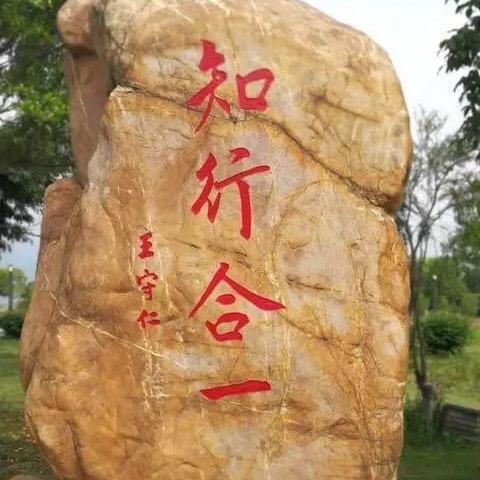 知行合一
王守仁